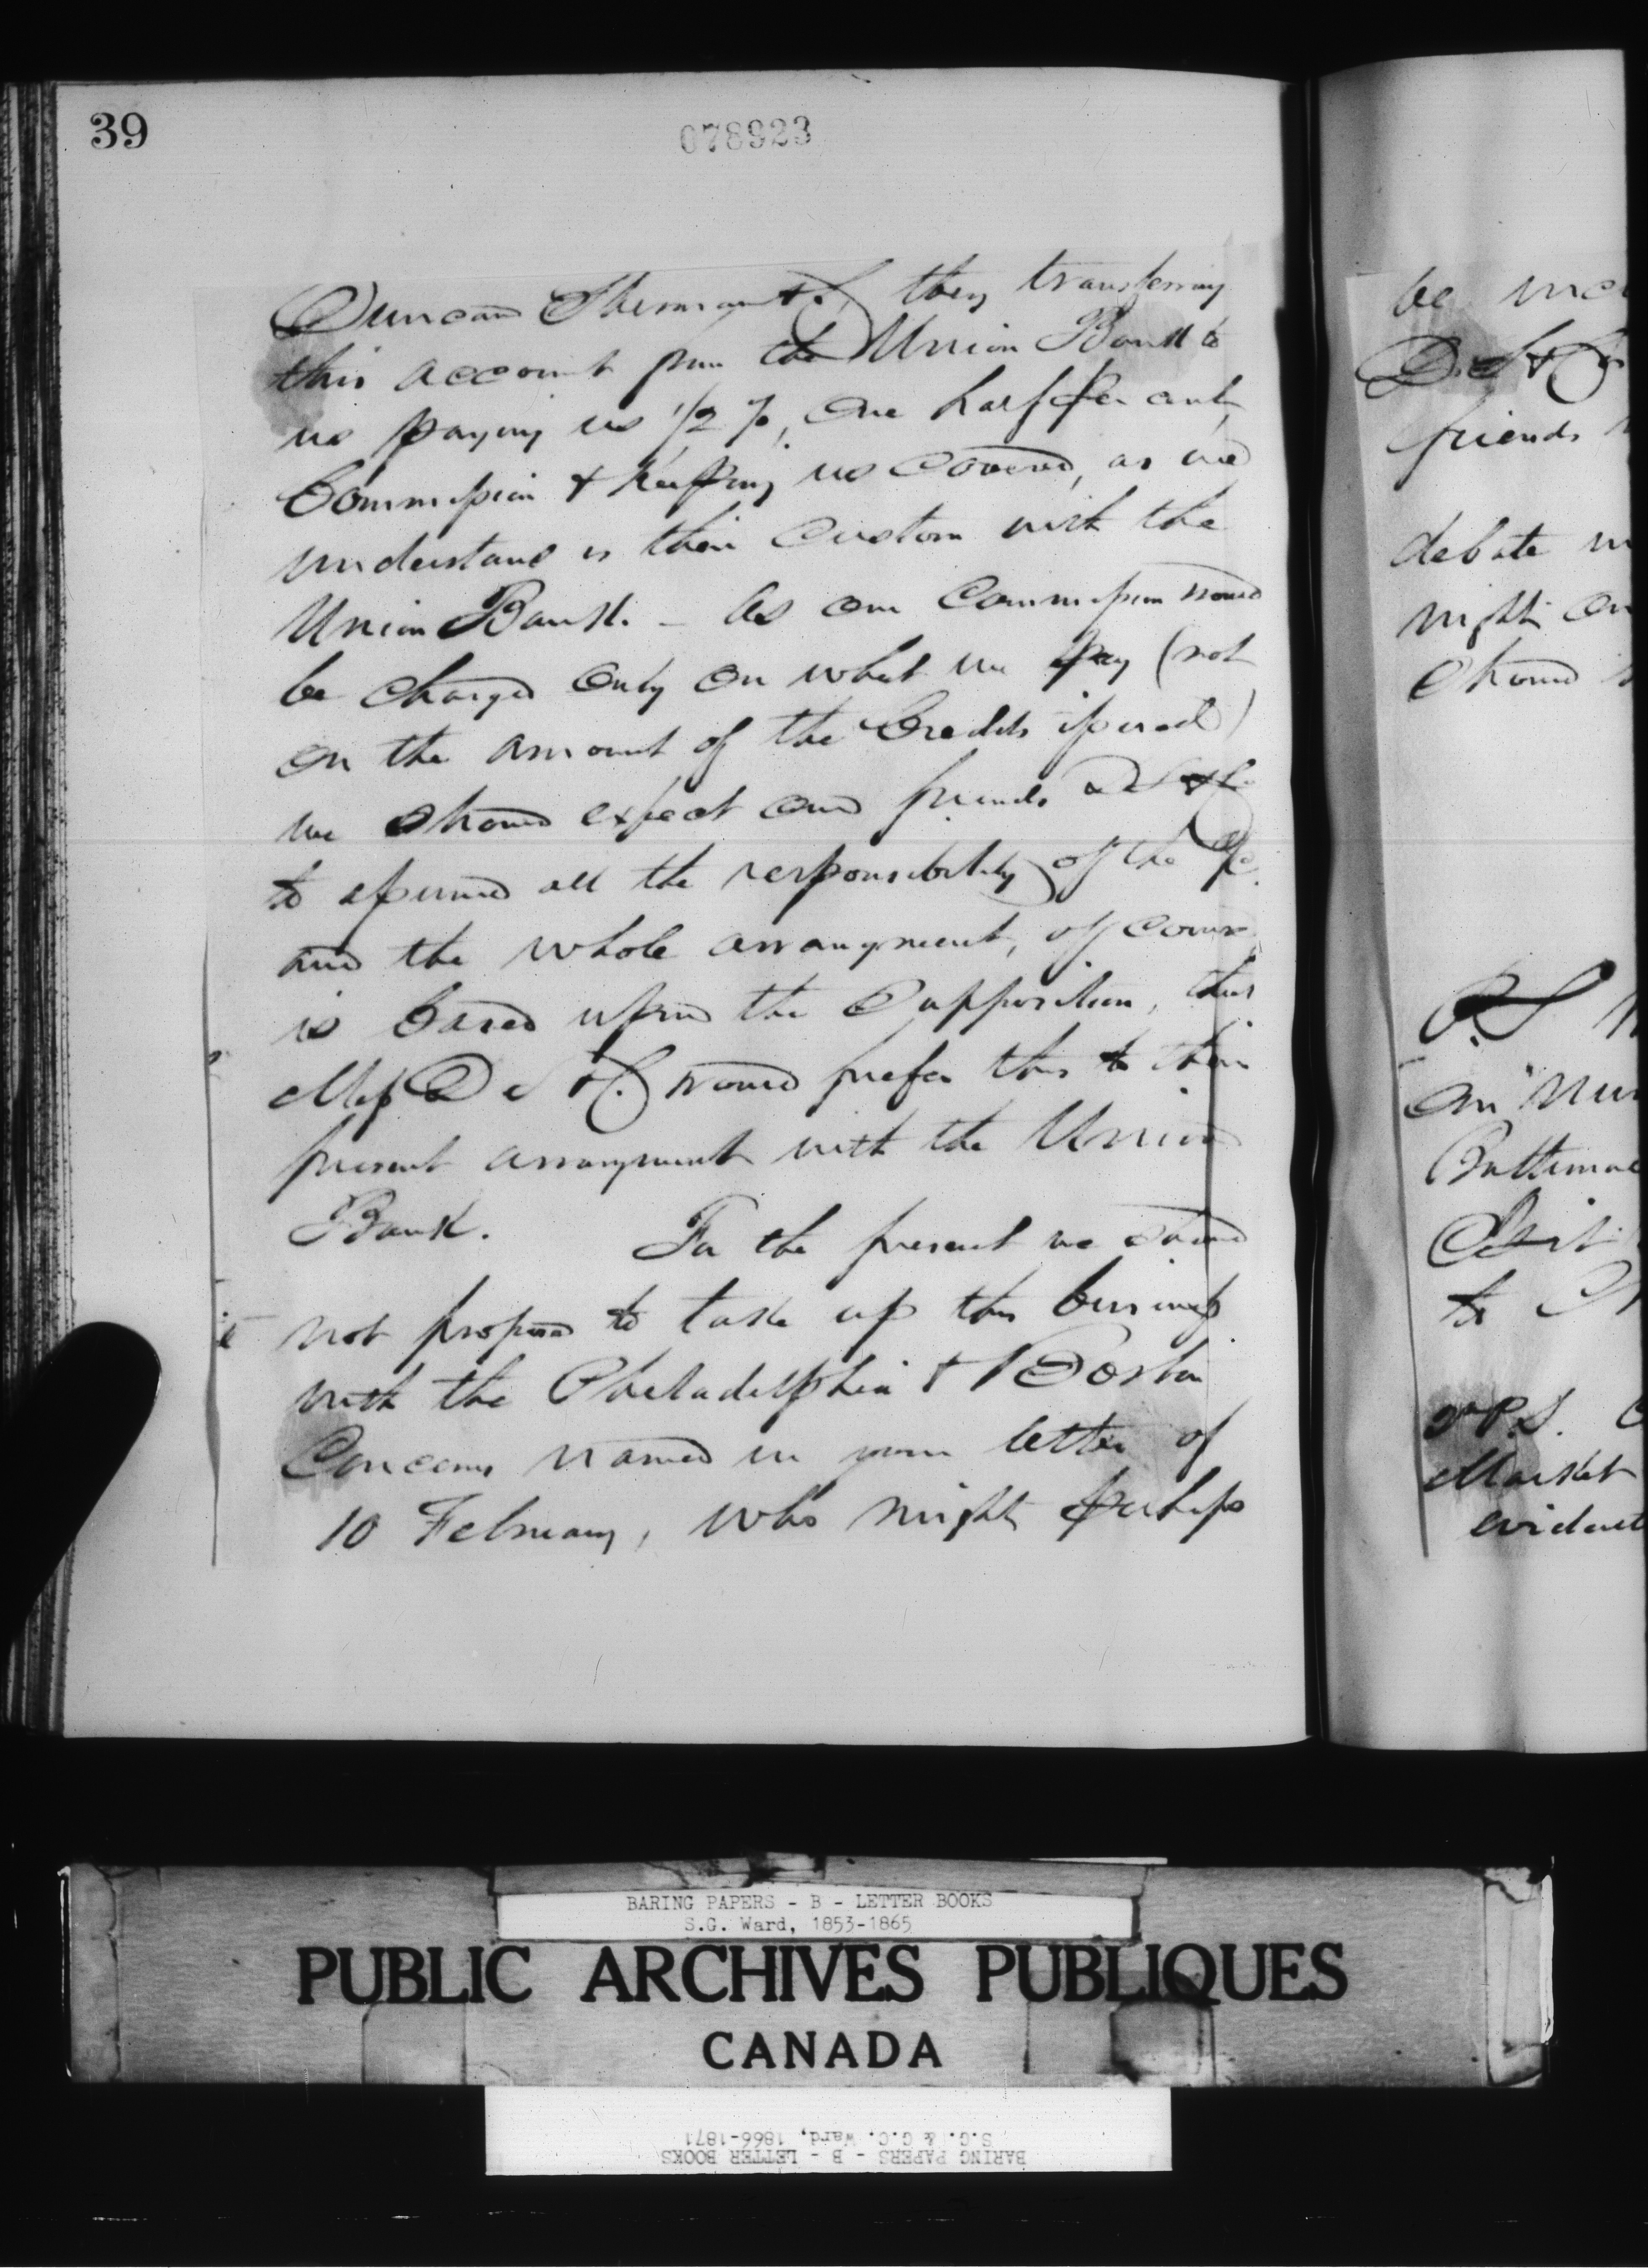 39
078923
Duncan Sherman & Co, they transferring
this account from the Union Bank to
us paying us 1/2 %, One half per cent,
Commission & keeping us covered, as we
understand is their custom with the
Union Bank. - As our Commission would
be charged only on what we pay (not
on the amount of the Credits issued)
we should expect our friends D S & Co
to assume all the responsibility of the a/c.
and the whole arrangement, of course,
is based upon the supposition, that
Mess D S & Co. would prefer this to their
present arrangement with the Union
Bank. For the present we should
not propose to take up this business
with the Philadelphia & Boston
Concerns named in your letter of
10 February, who might perhaps
be
D. S & Co
friends
debate
night
should
P.S
Baltimore
to
2d P.S.
Market
evident
BARING PAPERS - B - LETTER BOOKS
S.G. Ward, 1853-1865
PUBLIC ARCHIVES PUBLIQUES
CANADA
BARING PAPERS - B - LETTER BOOKS
S.G. & G.C. Ward, 1866-1871